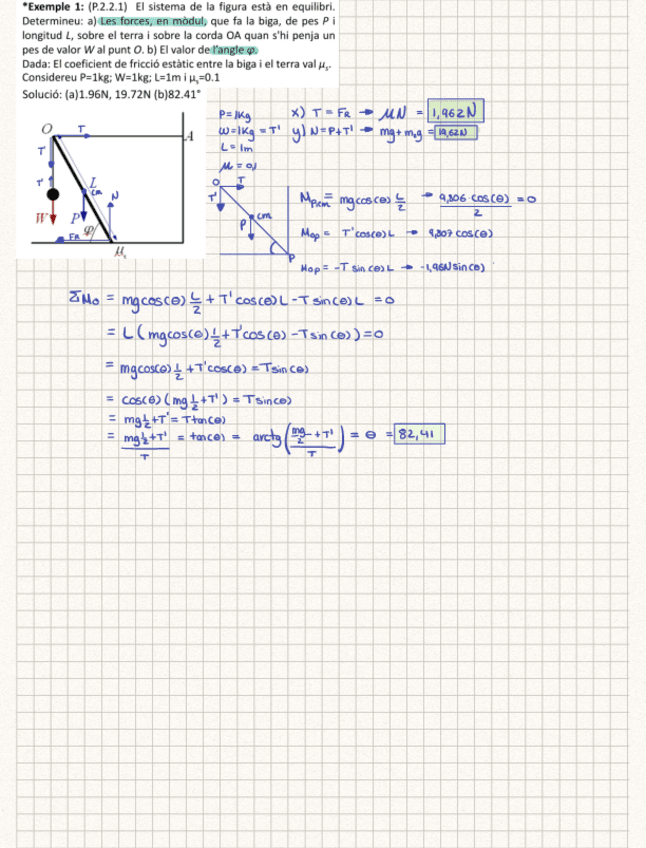 *Exemple 1: (P.2.2.1) El sistema de la figura està en equilibri.
Determineu: a) Les forces, en mòdul, que fa la biga, de pes P i
longitud L, sobre el terra i sobre la corda OA quan s'hi penja un
pes de valor W al punt O. b) El valor de l'angle φ.
Dada: El coeficient de fricció estàtic entre la biga i el terra val μs.
Considereu P=1kg; W=1kg; L=1m i μs=0.1
Solució: (a)1.96N, 19.72N (b)82.41°
O T A
T
T'
L
cm
N
W P
FR φ
μs
P=1Kg
W=1Kg = T'
L = 1m
μ = 0,1
x) T = FR → μN = 1,962N
y) N=P+T' → mg+m2g = 19,62N
O T
T'
cm
P
P
MPcm = mgcos(θ) L/2 → 9,806·cos(θ)/2 = 0
MOP = T'cos(θ)L → 9,807cos(θ)
MOP = -T sin(θ)L → -1,96N sin(θ)
ΣMO = mgcos(θ) L/2 + T' cos(θ)L - T sin(θ)L = 0
= L(mgcos(θ) 1/2 + T'cos(θ) - T sin(θ)) = 0
= mgcos(θ) 1/2 + T'cos(θ) = T sin(θ)
= cos(θ)(mg 1/2 + T') = T sin(θ)
= mg 1/2 + T' = T tan(θ)
= (mg 1/2 + T')/T = tan(θ) = arctg((mg/2 + T')/T) = θ = 82,41